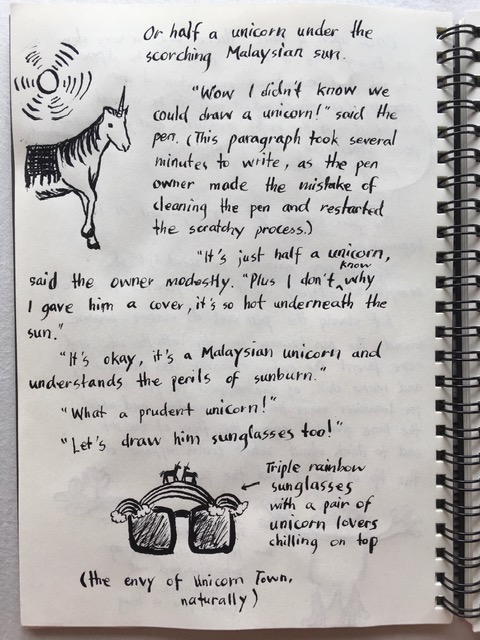 Or half a unicorn under the
scorching Malaysian sun.
"Wow I didn't know we
could draw a unicorn!" said the
pen. (This paragraph took several
minutes to write, as the pen
owner made the mistake of
cleaning the pen and restarted
the scratchy process.)
"It's just half a unicorn,
said the owner modestly. "Plus I don't know why
I gave him a cover, it's so hot underneath the
sun."
"It's okay, it's a Malaysian unicorn and
understands the perils of sunburn."
"What a prudent unicorn!"
"Let's draw him sunglasses too!"
Triple rainbow
sunglasses
with a pair of
unicorn lovers
chilling on top
(the envy of Unicorn Town,
naturally)